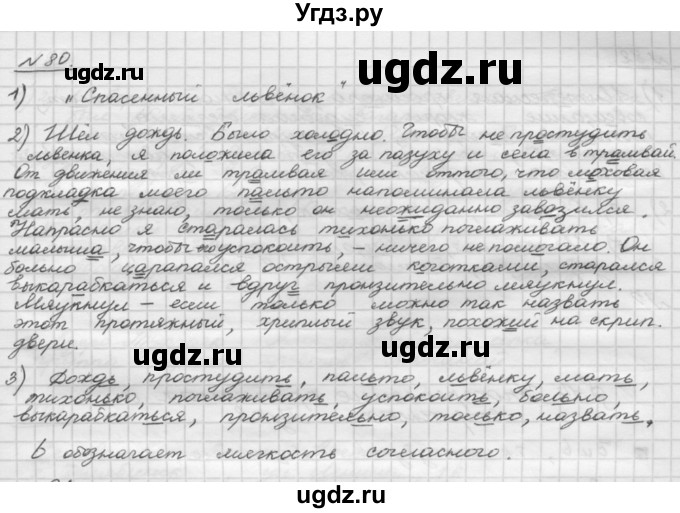 Угдз.ру
N 80.
1) "Спасенный львёнок"
2) Шёл дождь. Было холодно. Чтобы не простудить
львенка, я положила его за пазуху и села в трамвай.
От движения ли трамвая или оттого, что меховая
подкладка моего пальто напоминала львёнку
мать, не знаю, только он неожиданно завозился.
Напрасно я старалась тихонько поглаживать
малыша, чтобы успокоить, - ничего не помогало. Он
больно царапался острыми коготками, старался
выкарабкаться и вдруг пронзительно мяукнул.
Мяукнул - если только можно так назвать
этот протяжный, хриплый звук, похожий на скрип.
двери.
3) Дождь, простудить, пальто, львёнку, мать,
тихонько, поглаживать, успокоить, больно,
выкарабкаться, пронзительно, только, назвать.
Ь обозначает мягкость согласного.
ugdz.ru
ugdz.ru
ugdz.ru
ugdz.ru
ugdz.ru
ugdz.ru
ugdz.ru